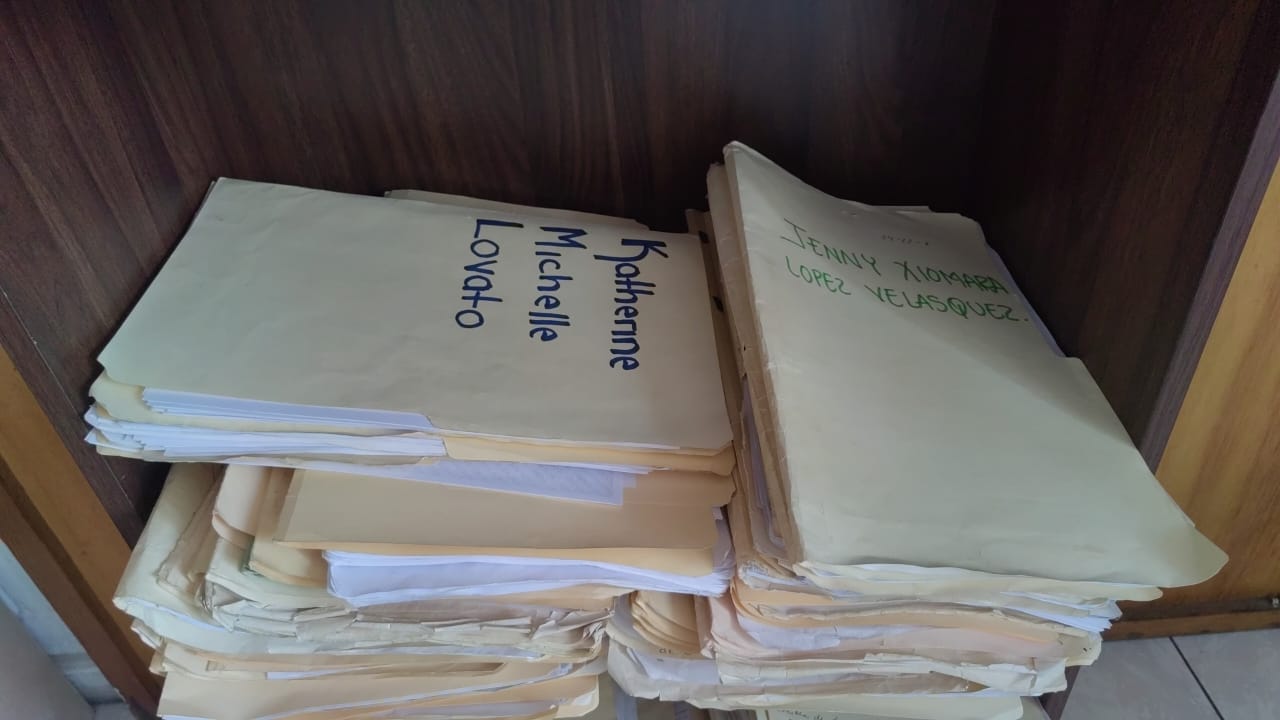 Katherine
Michelle
Lovato
JENNY XIOMARA
LOPEZ VELASQUEZ.